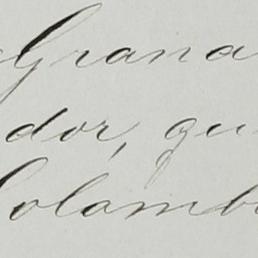 Grana
dor, qu
Colomb